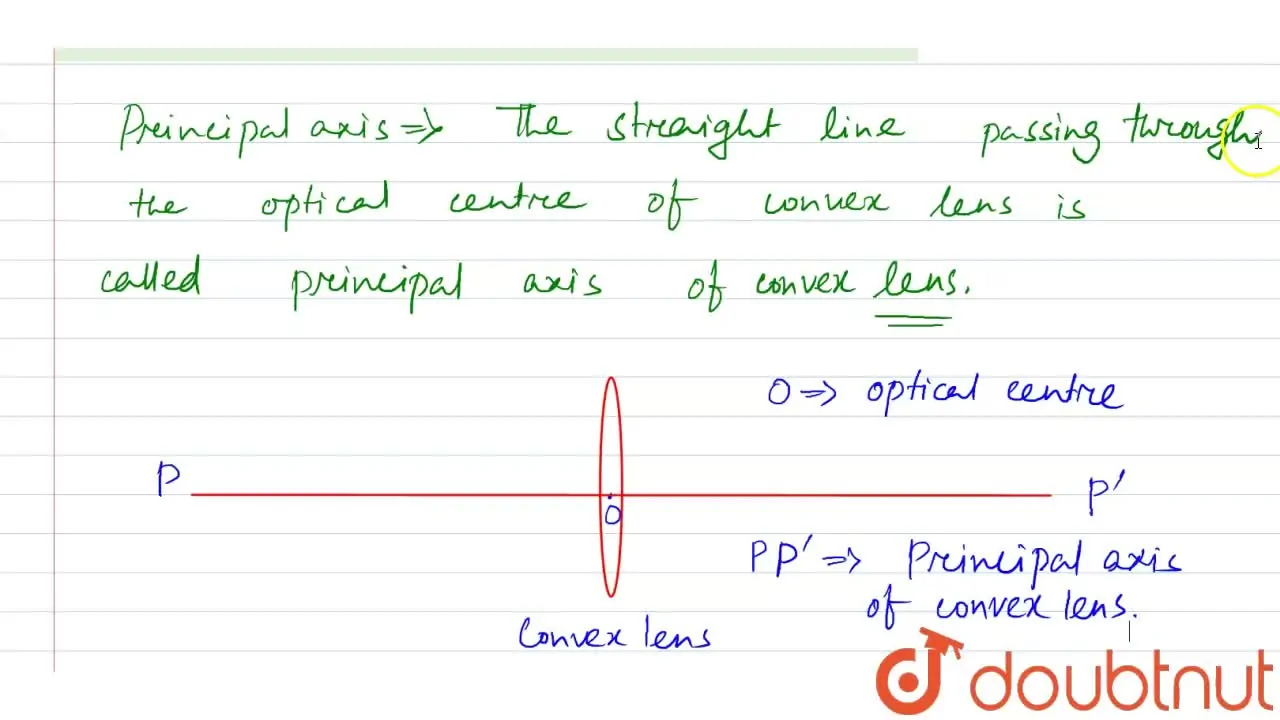 Principal axis ⇒ The straight line passing through
the optical centre of convex lens is
called principal axis of convex lens.
O ⇒ optical centre
P
P'
O
PP' ⇒ Principal axis
of convex lens.
Convex lens
doubtnut